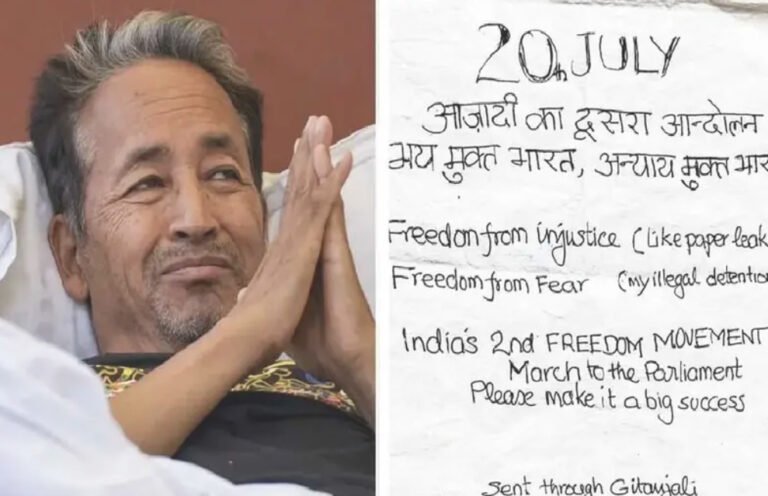 20th JULY
आज़ादी का दूसरा आन्दोलन
भय मुक्त भारत, अन्याय मुक्त
Freedom from injustice (Like paper leak
Freedom from Fear (my illegal detention
India's 2nd FREEDOM MOVEMENT
March to the Parliament
Please make it a big success
Sent through Gitanjali